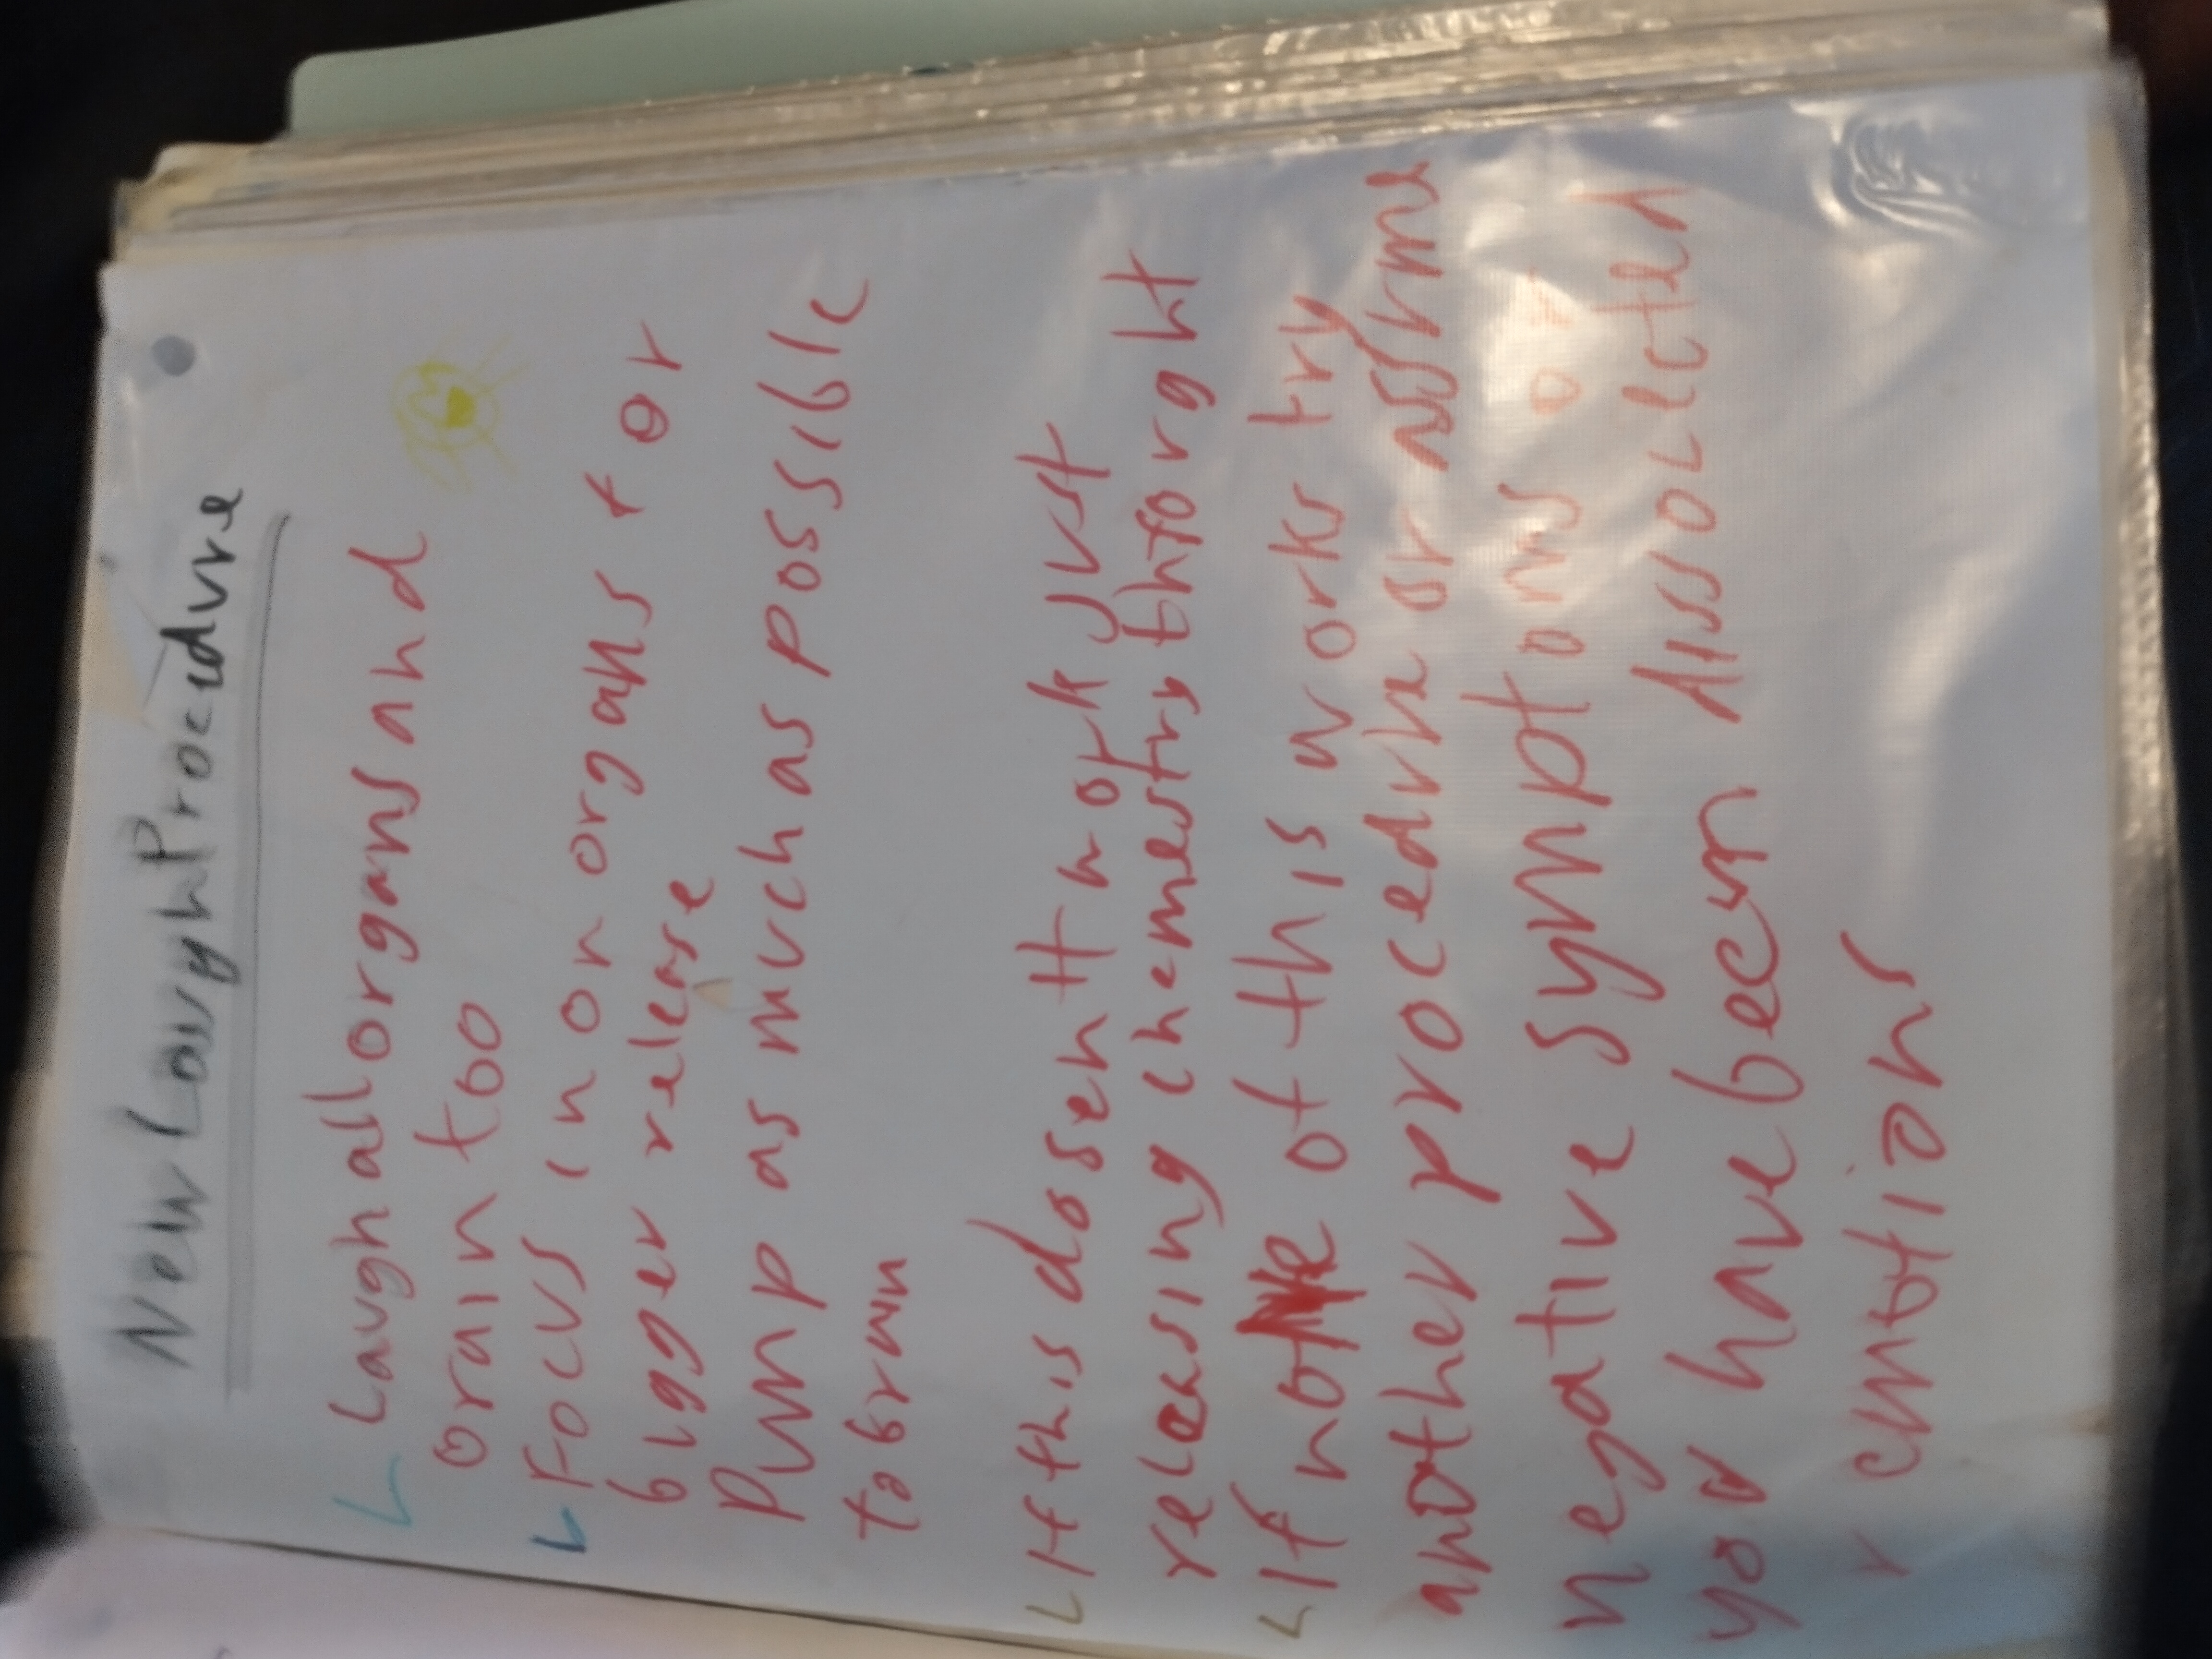 New Laugh Procudure
Laugh all organs and
brain too
Focus in on organs for
bigger release
Pump as much as possible
to brain
If this dosent work just
releasing chemestrs thorught
If none of this works try
another procedure or assume
negative symptoms o
you have been dissolected
emotions